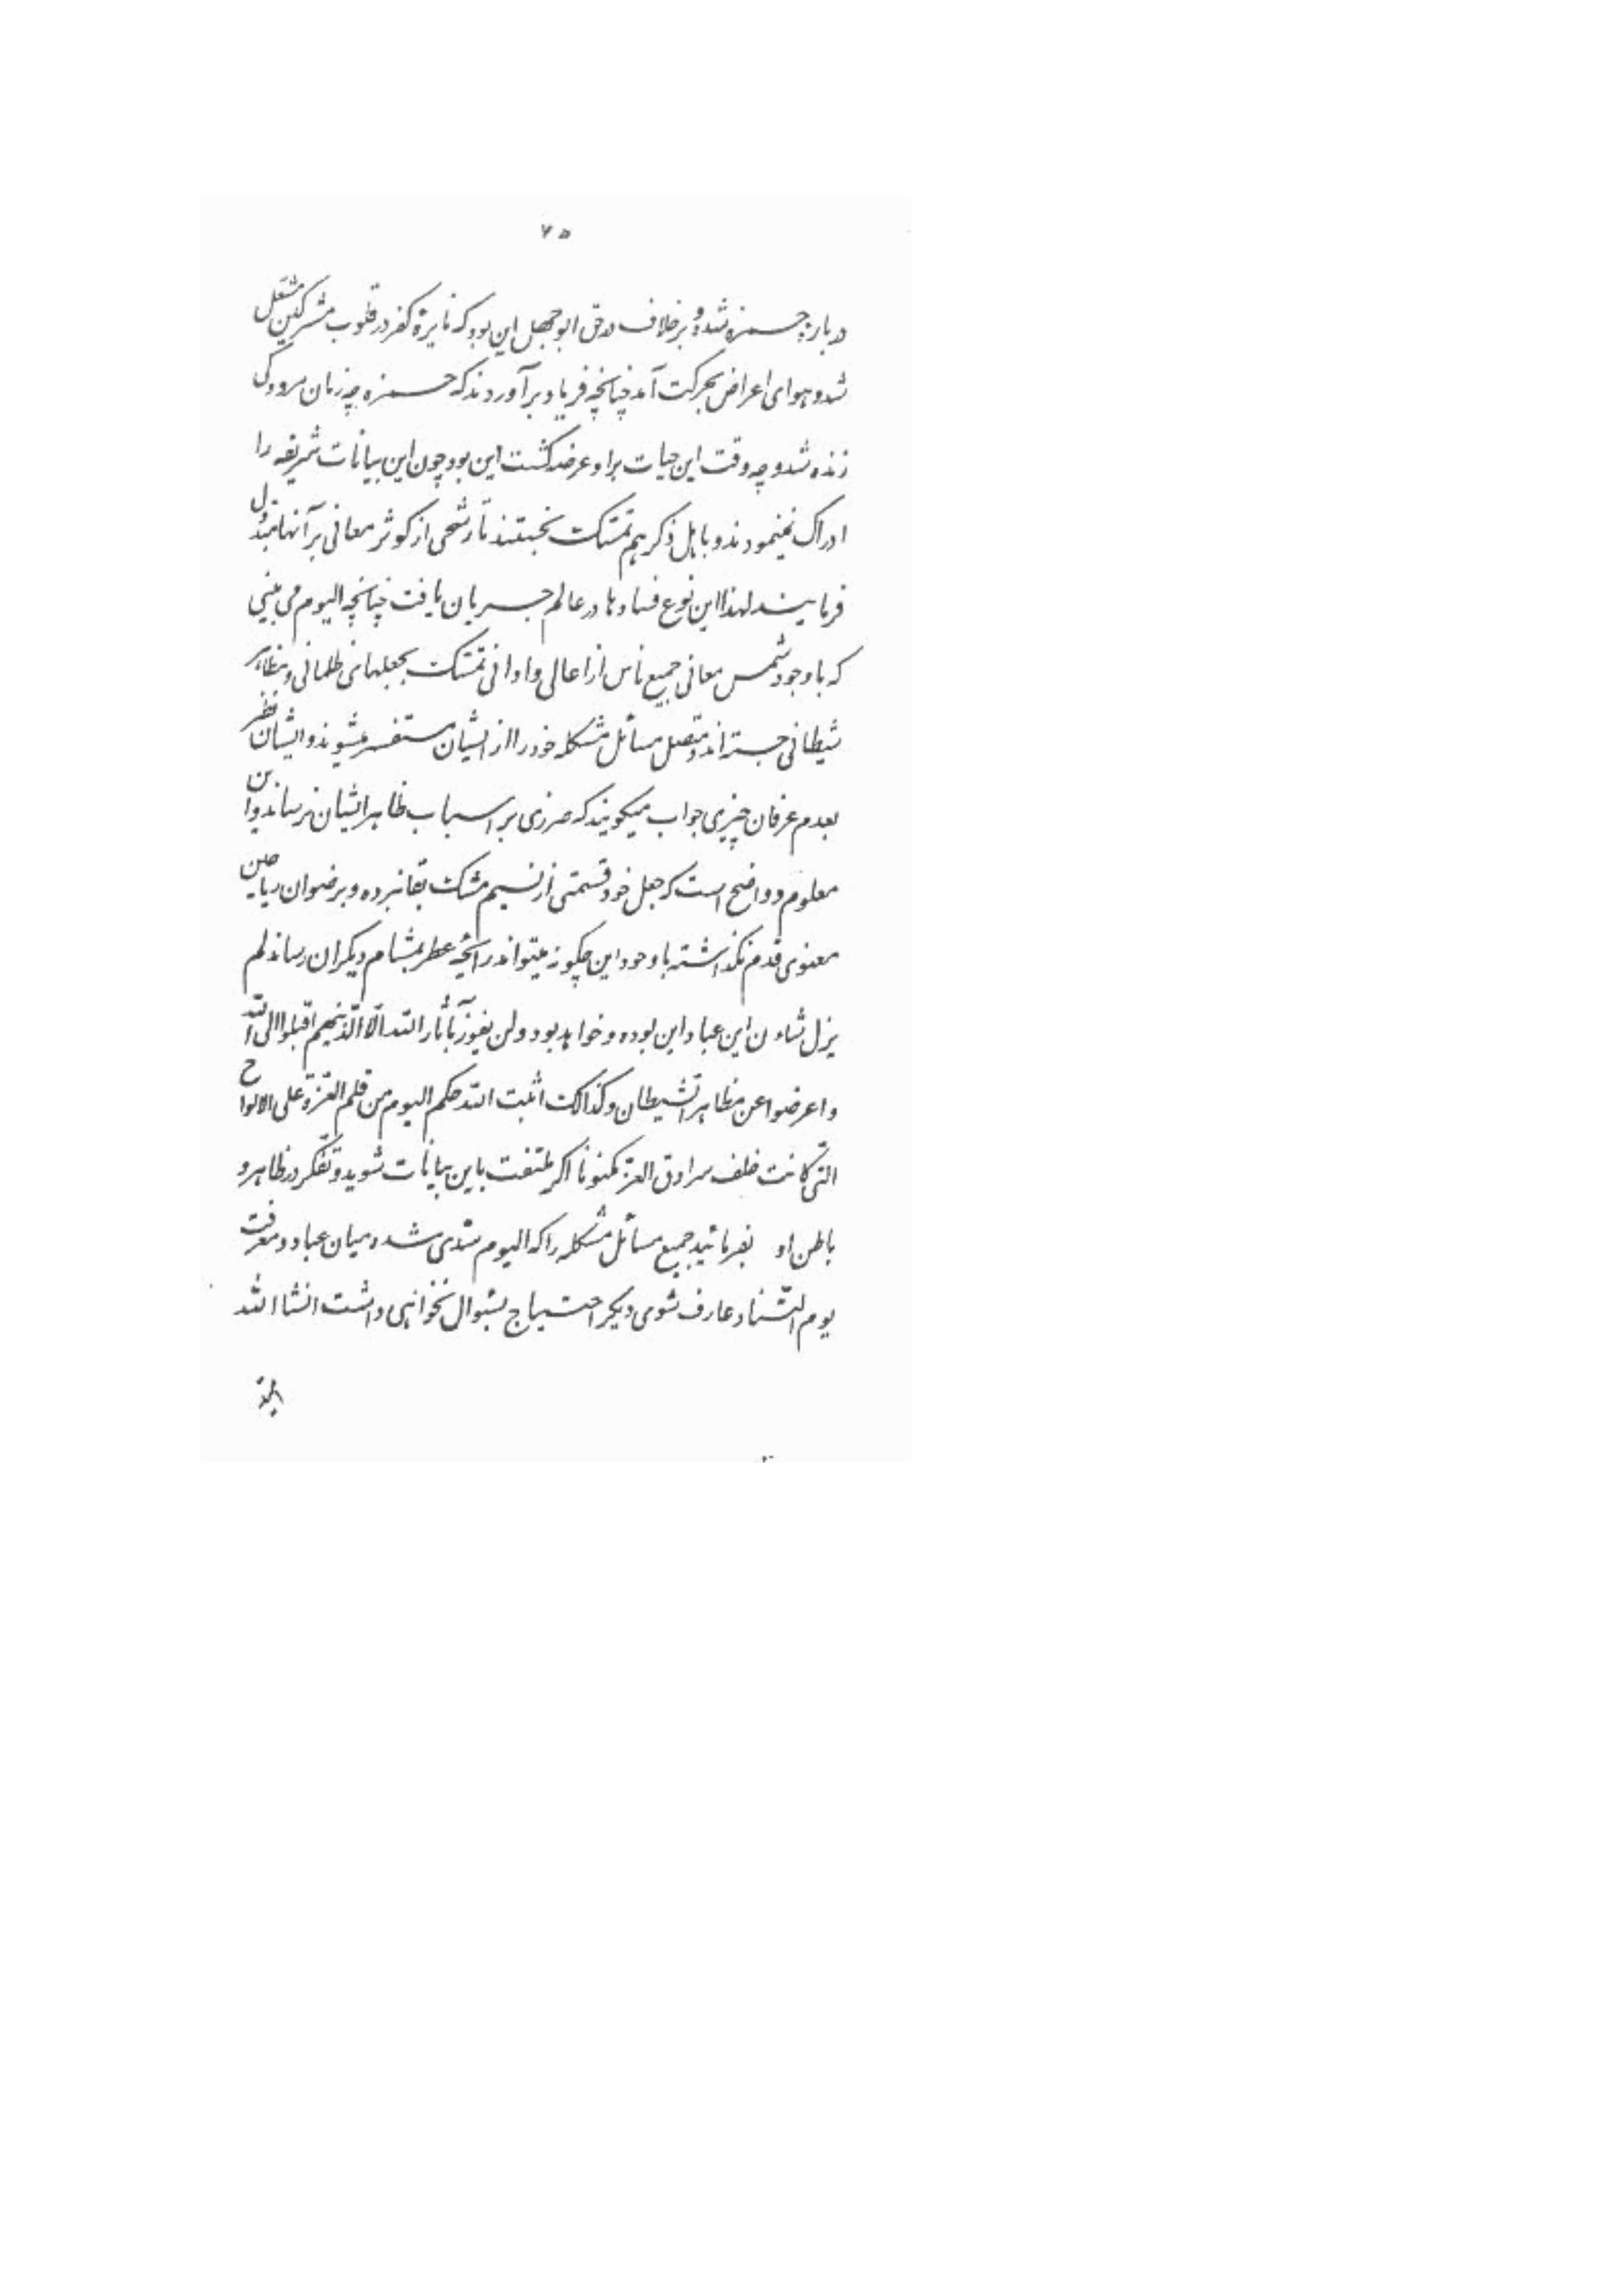 ۷۵
درباره حمزه شد و بر خلاف در حق ابوجهل این بود که نایرهٔ کفر در قلوب مشرکین مشتعل
شد و هوای اعراض بحرکت آمد چنانچه فریاد برآوردند که حمزه چه زمان مرد و کی
زنده شد و چه وقت این حیات بر او عرضه گشت این بود چون این بیانات شریفه را
ادراک نمینمودند و باهل ذکر هم تمسّک نجستند تا رشحی از کوثر معانی بر آنها مبذول
فرمایند لهذا این نوع فسادها در عالم جریان یافت چنانچه الیوم می بینی
که با وجود شمس معانی جمیع ناس از اعالی و ادانی تمسّک بجعلهای ظلمانی و مظاهر
شیطانی جسته‌اند و متّصل مسائل مشکله خود را از ایشان مستفسر میشوند و ایشان نظر
بعدم عرفان چیزی جواب میگویند که ضرری بر اسباب ظاهر ایشان نرساند و این
معلوم و واضح است که جعل خود قسمتی از نسیم مشک بقا نبرده و برضوان ریاحین
معنوی قدم نگذاشته با وجود این چگونه میتواند رائحهٔ عطر بمشام دیگران رساند لم
یزل شاءن این عباد این بوده و خواهد بود و لن یفوز بآثار اللّه الّا الّذینهم اقبلوا الی اللّه
و اعرضوا عن مظاهر الشّیطان و کذالک اثبت اللّه حکم الیوم من قلم العزّة علی الالواح
الّتی کانت خلف سرادق العز مکنونا اگر ملتفت باین بیانات شوید و تفکّر در ظاهر و
باطن او بفرمائید جمیع مسائل مشکله را که الیوم سدّی شده میان عباد و معرفت
یوم التّناد عارف شوی دیگر احتیاج بسئوال نخواهی داشت انشاا اللّه